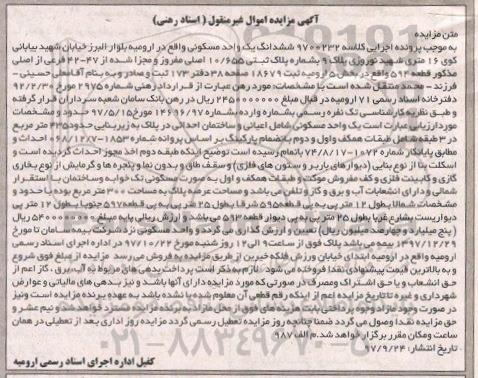 آگهی مزایده اموال غیرمنقول ( اسناد رهنی)
متن مزایده
به موجب پرونده اجرایی کلاسه ۹۷۰۰۲۳۲ ششدانگ یک واحد مسکونی واقع در ارومیه بلوار البرز خیابان شهید بیابانی
کوی ۱۶ متری شهید نوروزی پلاک ۹ بشماره پلاک ثبتی ۱۰/۶۵۵ اصلی مفروز و مجزا شده از ۴۷-۴۲ فرعی از اصلی
مذکور قطعه ۵۹۴ واقع در بخش ۵ ارومیه ثبت ۱۸۶۷۹ صفحه ۳۸ دفتر ۱۷۳ ثبت و صادر و به نام آقا معلی حسینی -
فرزند - محمد منتقل شده است با مشخصات: مورد رهن عبارت از قرارداد رهنی شماره ۲۹۷۵ مورخ ۹۲/۲/۳۰
دفترخانه اسناد رسمی ۷۱ ارومیه در قبال مبلغ ۲۴۵۰۰۰۰۰۰۰ ریال در رهن بانک سامان شعبه سرداران قرار گرفته
و طبق نظریه کارشناسی تک نفره رسمی بشماره وارده بشماره ۱۴۶۹۶/۹۷ مورخ ۹۷/۵/۱۵ حدود و مشخصات
مورد ارزیابی عبارت است یک واحد مسکونی شامل اعیانی و ساختمان احداثی در پلاک به زیربنایی حدود ۴۳۵ متر مربع
در ۳ طبقه شامل طبقات همکف و اول و دوم به انضمام پارکینگ بر اساس پروانه شماره ۰۶۸-۱۸۵۳-۷/۱۲/ احداث و
مطابق پایانکار شماره ۱۰۲۲-۷۴/۸/۱۷ با تمام رسیده است توضیح اینکه طبقه دوم اخذ مجوز احداث گردیده است و
اسکلت بنا از نوع بنایی (دیوارهای باربر و ستون های فلزی) و سقف طاق و بدون نما و پنجره ها و گرمایش از نوع بخاری
گازی و کابینت فلزی و کف مفروش موکت و طبقات همکف و اول به صورت مسکونی تک خوابه و ساختمان با استقرار
شمالی و دارای انشعابات آب و برق و گاز و تلفن می باشد و مساحت عرصه پلاک به مساحت ۳۰۰ متر مربع بوده با حدود و
مشخصات شمالا بطول ۱۲ متر پی به پی قطعه ۵۹۵ شرقا بطول ۲۵ متر پی به پی قطعه ۵۹۷ جنوبا بطول ۱۲ متر پی
دیواریست بشارع غربا بطول ۲۵ متر پی به پی دیوار قطعه ۵۹۳ می باشد و ارزش ریالی پایه مبلغ ۵۴۰۰۰۰۰۰۰۰ ریال
( پنج میلیارد و چهارصد میلیون ریال) تعیین و ارزش گذاری می گردد و واحد مسکونی نزد شرکت بیمه سامان تا مورخ
۱۳۹۷/۱۲/۲۹ بیمه می باشد پلاک فوق از ساعت ۹ الی ۱۲ روز شنبه مورخ ۹۷/۱۰/۲۲ در اداره اجرای اسناد رسمی
ارومیه واقع در ارومیه ابتدای خیابان ورزش فلکه خیرین از طریق مزایده به فروش می رسد مزایده از مبلغ فوق شروع
و به بالاترین قیمت پیشنهادی نقدا فروخته می شود. لازم به ذکر است پرداخت بدهی های مربوط به آب، برق، گاز اعم از
حق انشعاب و یا حق اشتراک و مصرف در صورتی که مورد مزایده دارای آنها باشد و نیز بدهی های مالیاتی و عوارض
شهرداری و غیره تا تاریخ مزایده اعم از اینکه رقم قطعی آن معلوم شده یا نشده باشد به عهده برنده مزایده است و نیز
در صورت وجود مازاد وجوه پرداختی بابت هزینه های فوق از محل مازاد به برنده مزایده مسترد خواهد شد و نیم عشر و
حق مزایده نقدا وصول می گردد ضمنا چنانچه روز مزایده تعطیل رسمی گردد مزایده روز اداری بعد از تعطیلی در همان
ساعت و مکان مقرر برگزار خواهد شد. م الف ۹۸۷
تاریخ انتشار: ۹۷/۹/۲۴
کفیل اداره اجرای اسناد رسمی ارومیه
۰۲۱-۸۸۳۴۹۶۷۰-۵